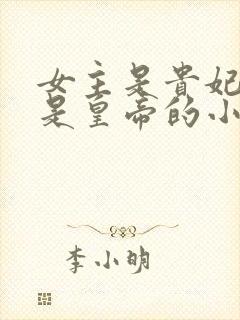 女主是贵妃
是皇帝的小
李小明